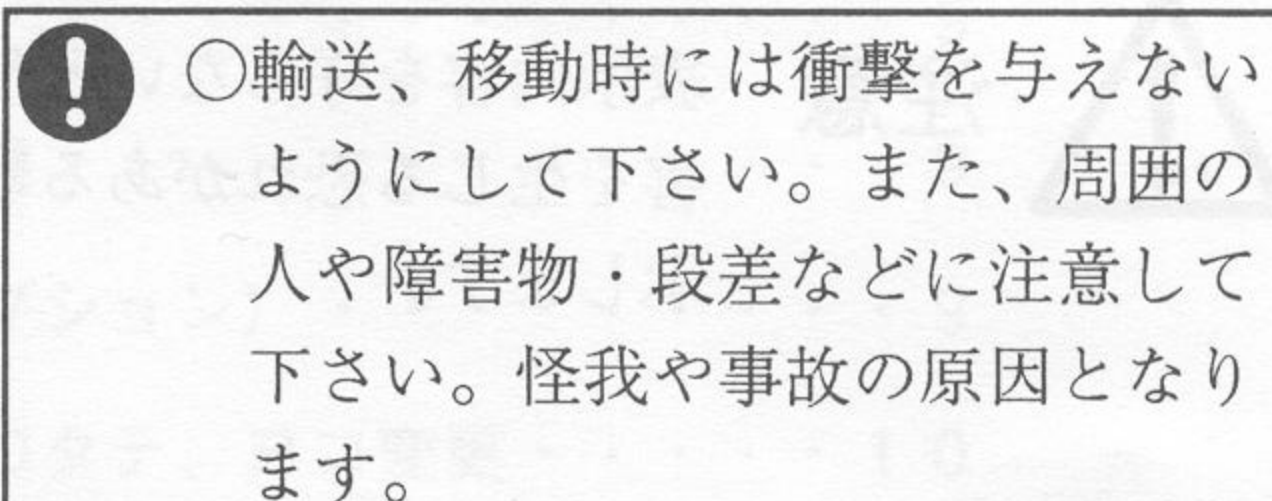 ○輸送、移動時には衝撃を与えない
ようにして下さい。また、周囲の
人や障害物・段差などに注意して
下さい。怪我や事故の原因となり
ます。